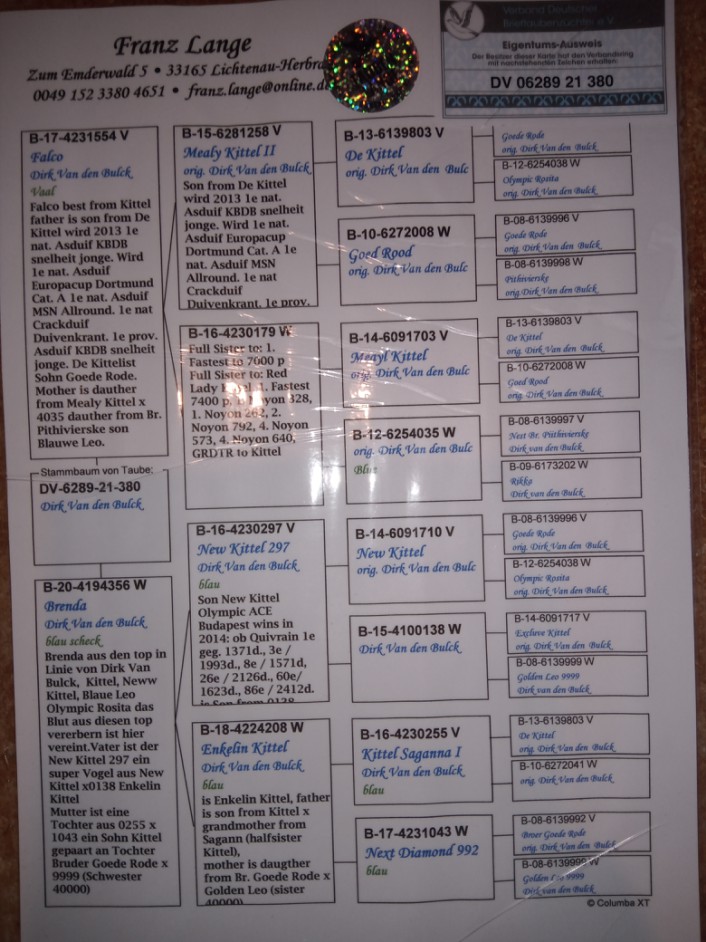 Franz Lange
Zum Emderwald 5 • 33165 Lichtenau-Herbra
0049 152 3380 4651 • franz.lange@online.de
Verband Deutscher
Brieftaubenzüchter e.V.
Eigentums-Ausweis
Der Besitzer dieser Karte hat den Verbandsring
mit nachstehenden Zeichen erhalten:
DV 06289 21 380
B-17-4231554 V
Falco
Dirk Van den Bulck
Vaal
Falco best from Kittel
father is son from De
Kittel wird 2013 1e
nat. Asduif KBDB
snelheit jonge. Wird
1e nat. Asduif
Europacup Dortmund
Cat. A 1e nat. Asduif
MSN Allround. 1e nat
Crackduif
Duivenkrant. 1e prov.
Asduif KBDB snelheit
jonge. De Kittelist
Sohn Goede Rode.
Mother is dauther
from Mealy Kittel x
4035 dauther from Br.
Pithivierske son
Blauwe Leo.
Stammbaum von Taube:
DV-6289-21-380
Dirk Van den Bulck
B-20-4194356 W
Brenda
Dirk Van den Bulck
blau scheck
Brenda aus den top in
Linie von Dirk Van
Bulck, Kittel, Neww
Kittel, Blaue Leo
Olympic Rosita das
Blut aus diesen top
vererbern ist hier
vereint.Vater ist der
New Kittel 297 ein
super Vogel aus New
Kittel x0138 Enkelin
Kittel
Mutter ist eine
Tochter aus 0255 x
1043 ein Sohn Kittel
gepaart an Tochter
Bruder Goede Rode x
9999 (Schwester
40000)
B-15-6281258 V
Mealy Kittel II
orig. Dirk Van den Bulck
Son from De Kittel
wird 2013 1e nat.
Asduif KBDB snelheit
jonge. Wird 1e nat.
Asduif Europacup
Dortmund Cat. A 1e
nat. Asduif MSN
Allround. 1e nat
Crackduif
Duivenkrant. 1e prov.
B-16-4230179 W
Full Sister to: 1.
Fastest to 7600 p
Full Sister to: Red
Lady 1. Fastest
7400 p. 1. Noyon 328,
1. Noyon 262, 2.
Noyon 792, 4. Noyon
573, 4. Noyon 640,
GRDTR to Kittel
B-16-4230297 V
New Kittel 297
Dirk Van den Bulck
blau
Son New Kittel
Olympic ACE
Budapest wins in
2014: ob Quivrain 1e
geg. 1371d., 3e /
1993d., 8e / 1571d,
26e / 2126d., 60e/
1623d., 86e / 2412d.
is Son from 0138
B-18-4224208 W
Enkelin Kittel
Dirk Van den Bulck
blau
is Enkelin Kittel, father
is son from Kittel x
grandmother from
Sagann (halfsister
Kittel),
mother is daugther
from Br. Goede Rode x
Golden Leo (sister
40000)
B-13-6139803 V
De Kittel
orig. Dirk Van den Bulc
B-10-6272008 W
Goed Rood
orig. Dirk Van den Bulc
B-14-6091703 V
Meayl Kittel
orig. Dirk Van den Bulc
B-12-6254035 W
orig. Dirk Van den Bulc
Blue
B-14-6091710 V
New Kittel
orig. Dirk Van den Bulc
B-15-4100138 W
Dirk Van den Bulck
B-16-4230255 V
Kittel Saganna I
Dirk Van den Bulck
blau
B-17-4231043 W
Next Diamond 992
Dirk Van den Bulck
blau
Goede Rode
orig. Dirk Van den Bulck
B-12-6254038 W
Olympic Rosita
orig. Dirk Van den Bulck
B-08-6139996 V
Goede Rode
orig. Dirk Van den Bulck
B-08-6139998 W
Pithivierske
orig. Dirk Van den Bulck
B-13-6139803 V
De Kittel
orig. Dirk Van den Bulck
B-10-6272008 W
Goed Rood
orig. Dirk Van den Bulck
B-08-6139997 V
Nest Br. Püthivierske
Dirk van den Bulck
B-09-6173202 W
Rikka
Dirk van den Bulck
B-08-6139996 V
Goede Rode
orig. Dirk Van den Bulck
B-12-6254038 W
Olympic Rosita
orig. Dirk Van den Bulck
B-14-6091717 V
Exclieve Kittel
orig. Dirk Van den Bulck
B-08-6139999 W
Golden Leo 9999
Dirk van den Bulck
B-13-6139803 V
De Kittel
orig. Dirk Van den Bulck
B-10-6272041 W
orig. Dirk Van den Bulck
B-08-6139992 V
Broer Goede Rode
orig. Dirk Van den Bulck
B-08-6139999 W
Golden Leo 9999
Dirk van den Bulck
© Columba XT